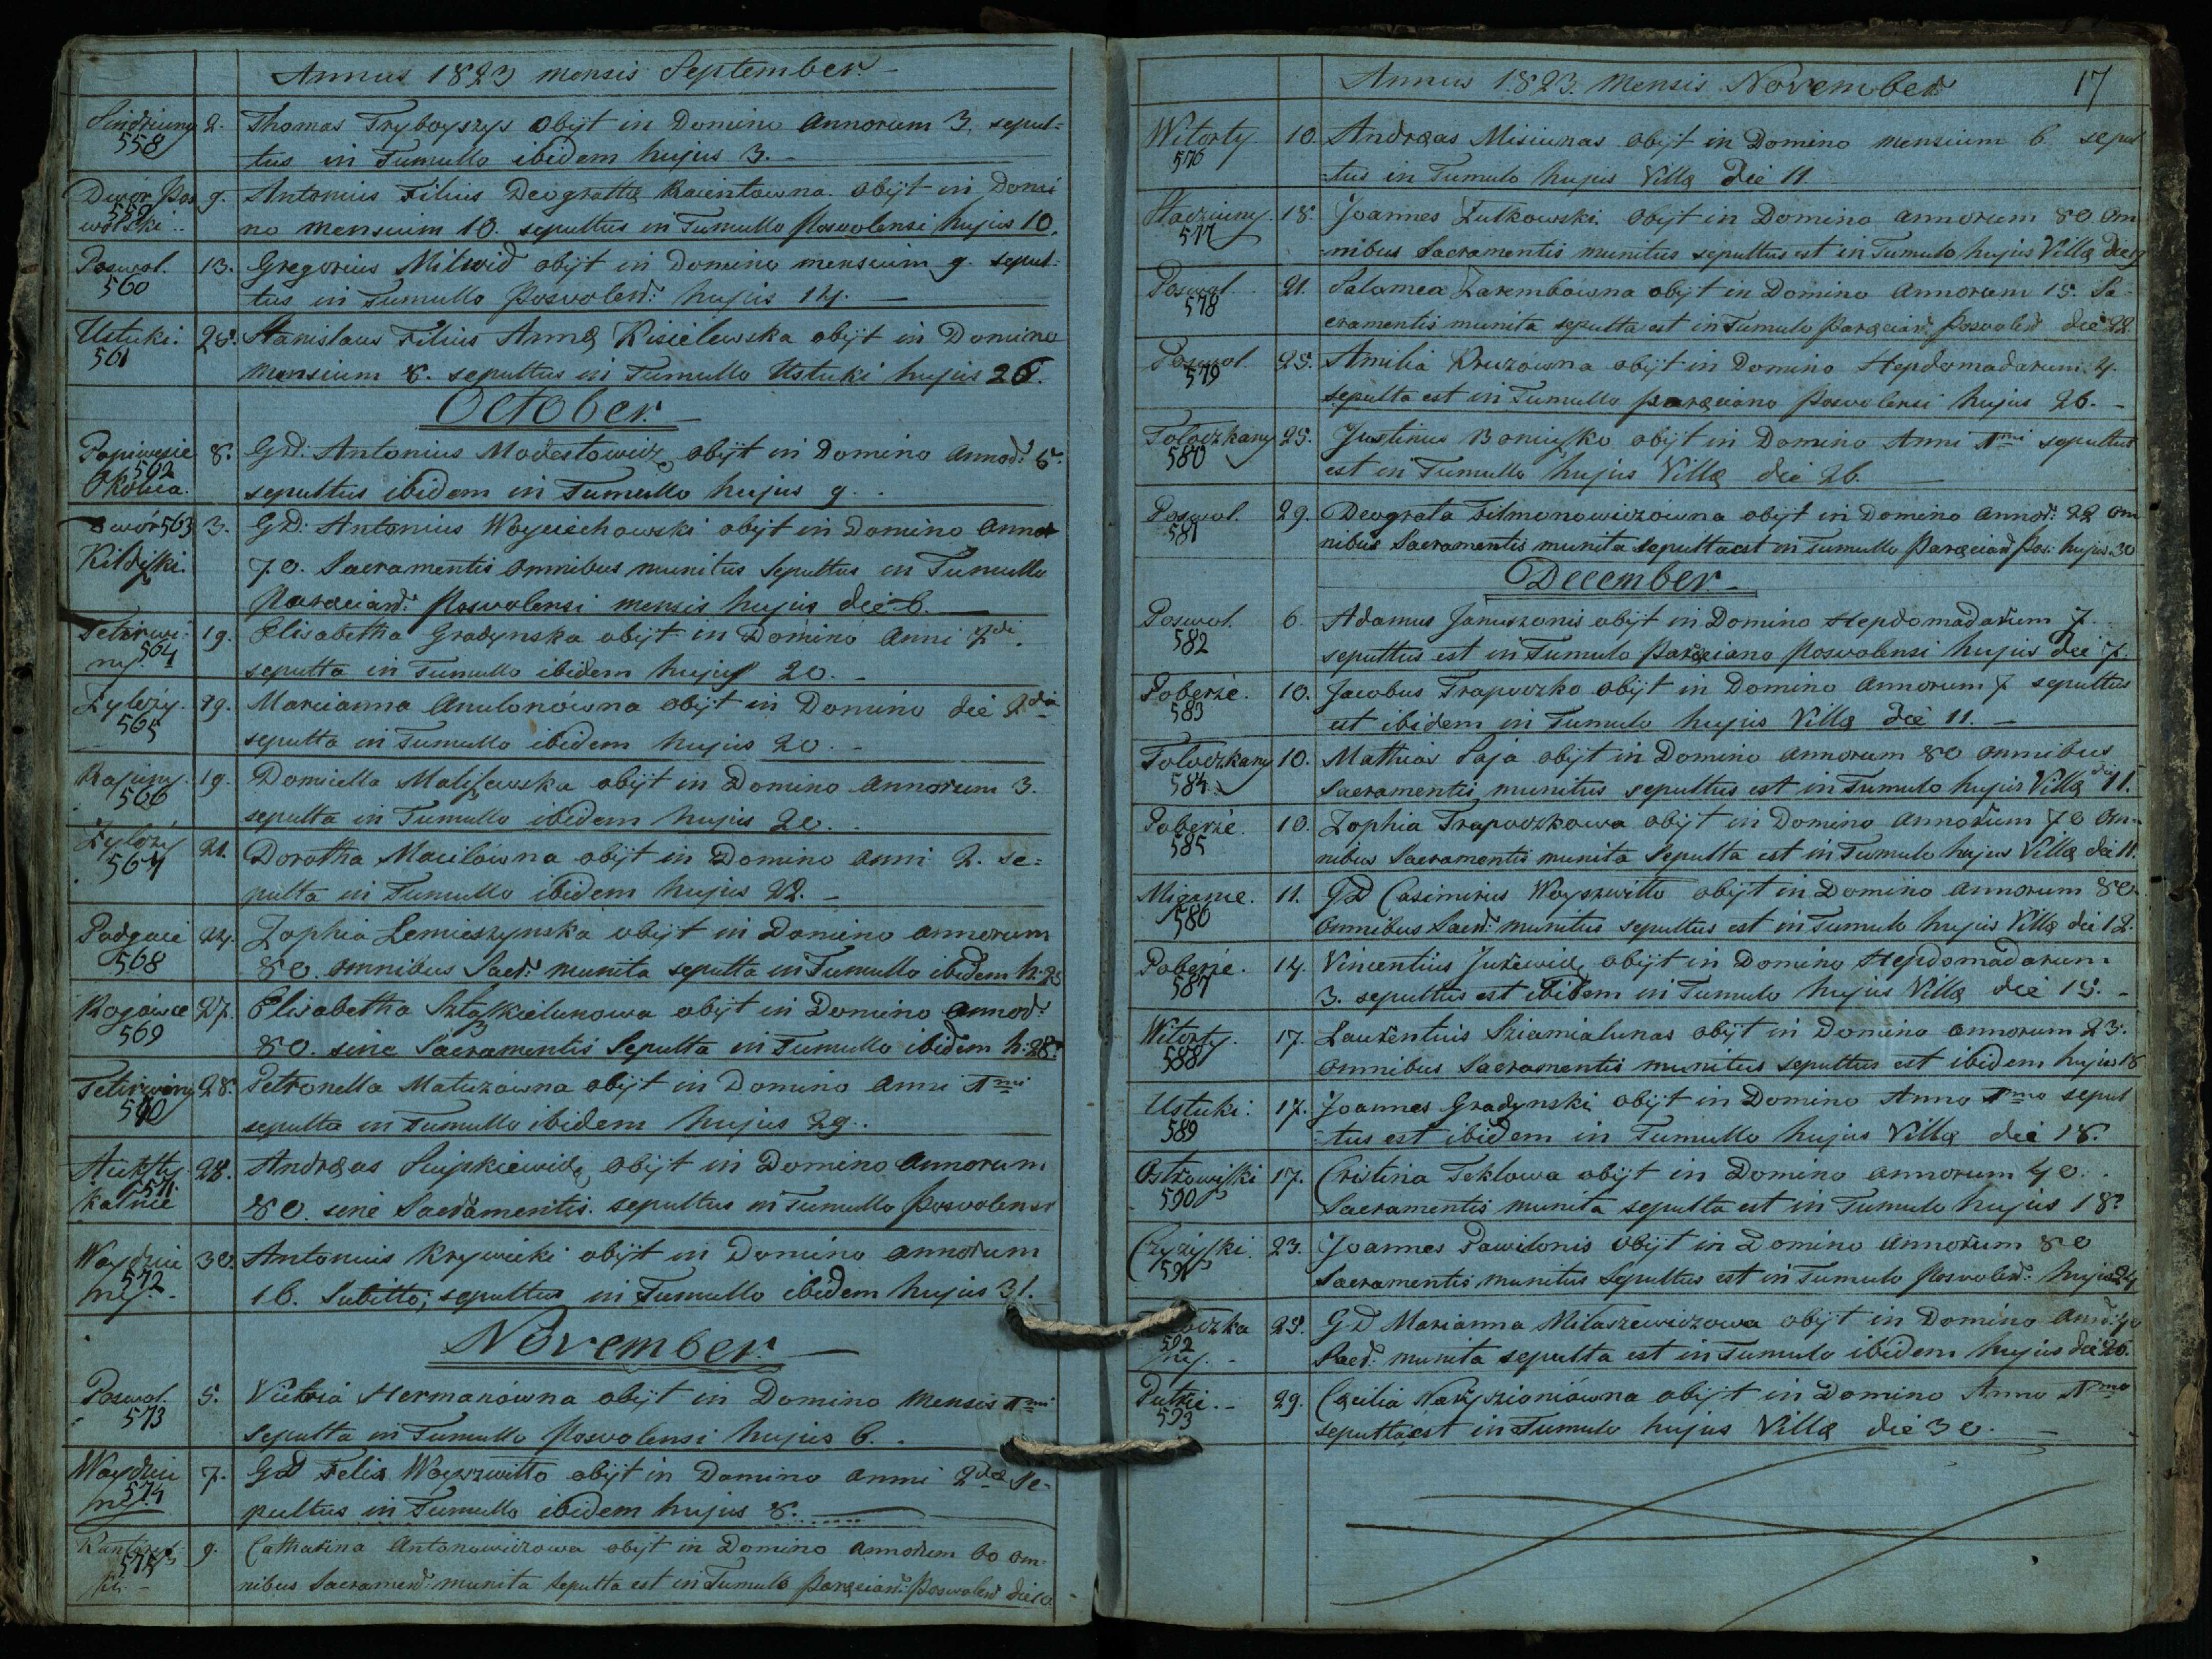 Annus 1823 mensis September.
558
2. Thomas Tryboyszys obijt in Domino Annorum 3. sepul=
tus in Tumullo ibidem hujus 3.
Dwór Pos
559
wolski
9. Antonius Filius Deogratta obijt in Domi
no mensium 10. sepultus in Tumullo Poswolensi hujus 10.
Poswol.
560
13. Gregorius Milwid obijt in Domino mensium 9. sepul=
tus in Tumullo Poswolen: hujus 14.
Ustuki.
561
25. Stanislaus Filius Annæ Kisielewska obijt in Domino
mensium 8. sepultus in Tumullo Ustuki hujus 26.
October.
562
Okolica.
8. GD: Antonius Modestowicz obijt in Domino Annor:
sepultus ibidem in Tumullo hujus 9.
Dwór 563
3. GD: Antonius Woyciechowski obijt in Domino Annor
70. Sacramentis omnibus munitus Sepultus in Tumullo
Paræcian: Poswolensi mensis hujus die 6.
Tetirwi-
ny. 564
19. Elisabetha Gradynska obijt in Domino Anni
sepulta in Tumullo ibidem hujus 20.
565
19. Marcianna obijt in Domino die
sepulta in Tumullo ibidem hujus 20.
566
19. Domicella obijt in Domino Annorum 3.
sepulta in Tumullo ibidem hujus 20.
567
21. Dorotha Macilówna obijt in Domino anni 2. se=
pulta in Tumullo ibidem hujus 22.
Podgaie
568
24. Zophia Lemieszynska obijt in Domino annorum
80. omnibus Sacr: munita sepulta in Tumullo ibidem h: 25
569
27. Elisabetha obijt in Domino annor:
80. sine Sacramentis Sepulta in Tumullo ibidem h: 28.
Tetirwiny
570
28. Petronella Matuzówna obijt in Domino anni 1mi
sepulta in Tumullo ibidem hujus 29.
571
kalnie
28. Andræas obijt in Domino Annorum
80. sine Sacramentis. sepultus in Tumullo Poswolensi
Woydziu
572
ny.
30. Antonius Krywicki obijt in Domino annorum
16. Subitto; sepultus in Tumullo ibidem hujus 31.
November.
Poswol.
573
5. Victoria Hermanówna obijt in Domino mensis 1mi
sepulta in Tumullo Poswolensi hujus 6.
Woydziu
574
ny
7. GD Felix Woyszwitto obijt in Domino anni 2dæ Se-
pultus in Tumullo ibidem hujus 8.
575
9. Catharina Antonowiczowa obijt in Domino Annorum 60 om=
nibus Sacramen: munita sepulta est in Tumulo Paræcian: Poswolen die 10.
Annus 1823. Mensis November
17
Witorty
576
10. Andræas Misiunas obijt in Domino mensium 6 sepul
tus in Tumulo hujus Villæ Die 11.
577
18. Joannes Lutkowski obijt in Domino annorum 80. Om
nibus Sacramentis munitus sepultus est in Tumulo hujus Villæ die 19
Poswol.
578
21. Salomea Zarembówna obijt in Domino Annorum 15. Sa-
cramentis munita sepulta est in Tumulo Paræcian: Poswolen die 22.
Poswol.
579
25. Amilia Kruzówna obijt in Domino Hepdomadarum 4.
sepulta est in Tumullo paræciano Poswolensi hujus 26.
Tołoczkany
580
25. Justinus obijt in Domino Anni 1mi sepultus
est in Tumullo hujus Villæ die 26.
Poswol.
581
29. Deograta Filmonowiczówna obijt in Domino annor: 22 om
nibus Sacramentis munita sepulta est in Tumullo Paræcian Pos: hujus 30
December.
Poswol.
582
6. Adamus Januszonis obijt in Domino Hepdomadarum 7.
sepultus est in Tumulo Paræciano Poswolensi hujus die 7.
Poberże.
583
10. Jacobus Trapoczko obijt in Domino Annorum 7 sepultus
est ibidem in Tumulo hujus Villæ die 11.
Tołoczkany
584
10. Mathias Saja obijt in Domino annorum 80 omnibus
Sacramentis munitus sepultus est in Tumulo hujus Villæ die 11.
Poberże.
585
10. Zophia Trapoczkowa obijt in Domino annorum 70 om-
nibus Sacramentis munita Sepulta est in Tumulo hujus Villæ die 11.
586
11. GD Casimirus Woyszwitto obijt in Domino annorum 80.
omnibus Sacr: munitus sepultus est in Tumulo hujus Villæ die 12.
Poberże.
587
14. Vincentius Jurewicz obijt in Domino Hepdomadarum
3. sepultus est ibidem in Tumulo hujus Villæ die 15.
Witorty.
588
17. Laurentius Sziamialunas obijt in Domino annorum 23.
omnibus Sacramentis munitus sepultus est ibidem hujus 18
Ustuki.
589
17. Joannes Gradynski obijt in Domino Anno 1mo sepul
tus est ibidem in Tumullo hujus Villæ die 18.
Ostrowiski
590
17. Cristina Teklowa obijt in Domino annorum 40.
Sacramentis munita sepulta est in Tumulo hujus 18.
591
23. Joannes Pawilonis obijt in Domino Annorum 80
Sacramentis munitus Sepultus est in Tumulo Poswolen: hujus 24
592
ny.
25. GD Marianna Mitaszewiczowa obijt in Domino Ann: 40
Sacr: munita sepulta est in Tumulo ibidem hujus die 26.
593
29. Cæcilia obijt in Domino Anno 1mo
sepulta est in Tumulo hujus Villæ die 30.